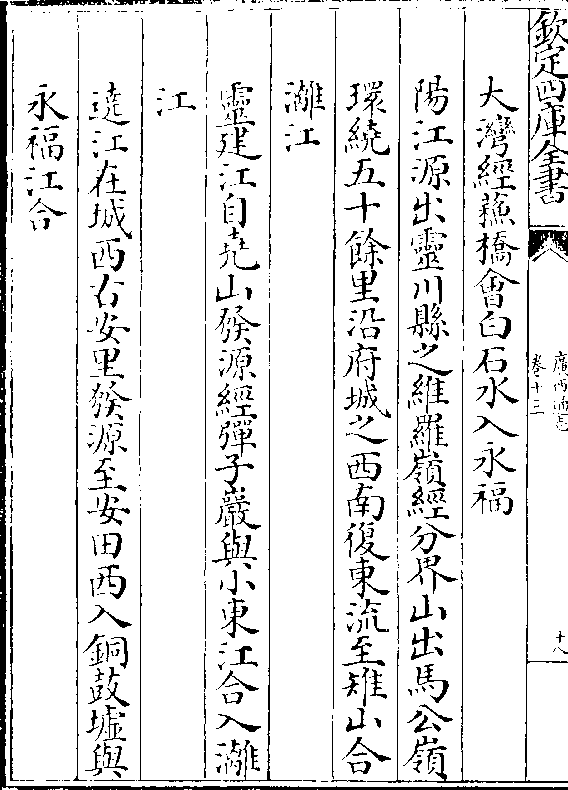 欽定四庫全書
廣西通志
卷十三
十八
大灣經蘓橋會白石水入永福
陽江源出靈川縣之維羅嶺經分界山出馬公嶺
環繞五十餘里沿府城之西南復東流至雉山合
灕江
靈建江自堯山發源經彈子巖與小東江合入灕
江
遶江在城西右安里發源至安田西入銅鼓墟與
永福江合